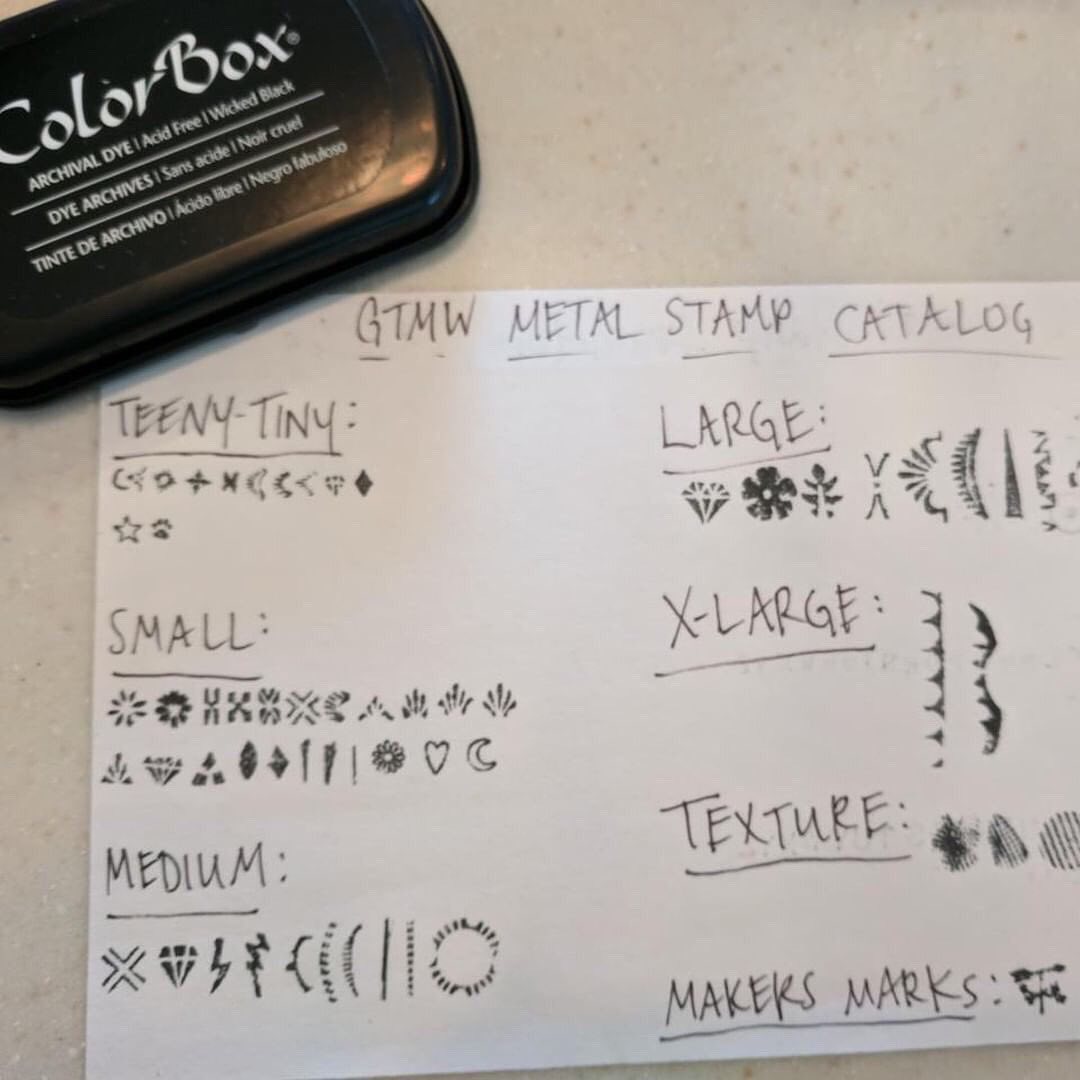 ColorBox®
ARCHIVAL DYE | Acid Free | Wicked Black
DYE ARCHIVES | Sans acide | Noir cruel
TINTE DE ARCHIVO | Ácido libre | Negro fabuloso
GTMW METAL STAMP CATALOG
TEENY-TINY:
SMALL:
MEDIUM:
LARGE:
X-LARGE:
TEXTURE:
MAKERS MARKS: